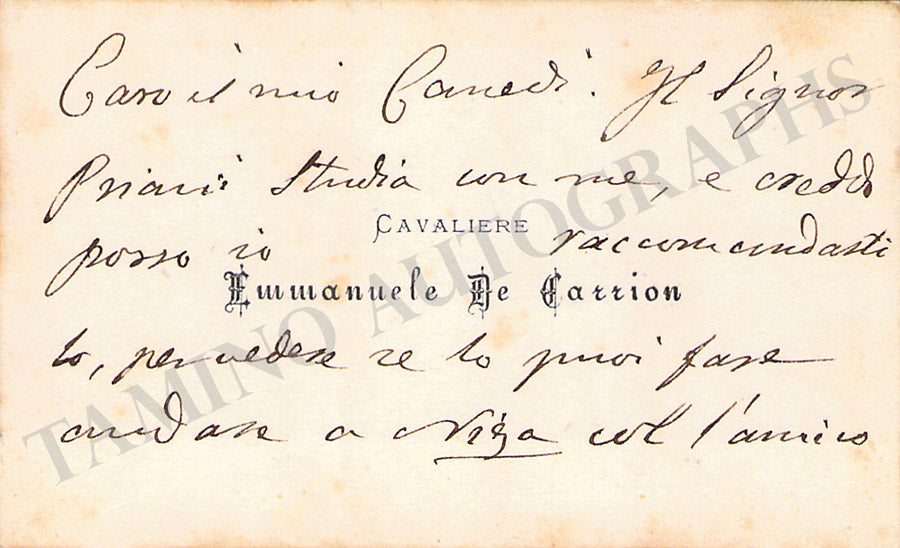 Caro il mio Canedi. Il Signor
Priani studia con me, e credo
CAVALIERE
posso io raccomandarti
Emmanuele De Carrion
lo, per vedere se lo puoi fare
andare a Niza coll l'amico
TAMINO AUTOGRAPHS